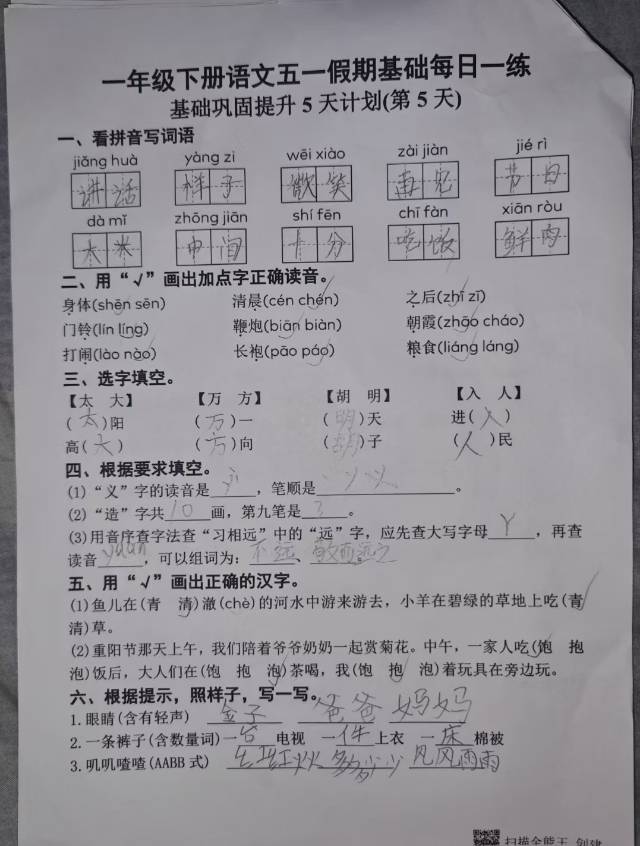 一年级下册语文五一假期基础每日一练
基础巩固提升 5 天计划(第 5 天)
一、看拼音写词语
jiǎng huà yàng zi wēi xiào zài jiàn jié rì
讲话 样子 微笑 再见 节日
dà mǐ zhōng jiān shí fēn chī fàn xiān ròu
大米 中间 十分 吃饭 鲜肉
二、用“√”画出加点字正确读音。
身体(shēn sēn) 清晨(cén chén) 之后(zhī zī)
门铃(lín líng) 鞭炮(biān biàn) 朝霞(zhāo cháo)
打闹(lào nào) 长袍(pāo páo) 粮食(liáng láng)
三、选字填空。
【太 大】 【万 方】 【胡 明】 【入 人】
(太)阳 (万)一 (明)天 进(入)
高(大) (方)向 (胡)子 (人)民
四、根据要求填空。
(1)“义”字的读音是yì,笔顺是。
(2)“造”字共10画,第九笔是。
(3)用音序查字法查“习相远”中的“远”字,应先查大写字母Y,再查
读音yuǎn,可以组词为:不远、敬而远之
五、用“√”画出正确的汉字。
(1)鱼儿在(青 清)澈(chè)的河水中游来游去,小羊在碧绿的草地上吃(青
清)草。
(2)重阳节那天上午,我们陪着爷爷奶奶一起赏菊花。中午,一家人吃(饱 抱
泡)饭后,大人们在(饱 抱 泡)茶喝,我(饱 抱 泡)着玩具在旁边玩。
六、根据提示,照样子,写一写。
1.眼睛(含有轻声) 金子 爸爸 妈妈
2.一条裤子(含数量词)一台电视 一件上衣 一床棉被
3.叽叽喳喳(AABB 式) 多多少少 风风雨雨
扫描全能王 创建